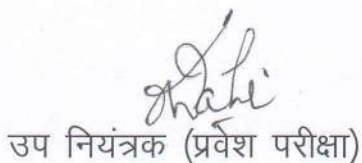 उप नियंत्रक (प्रवेश परीक्षा)